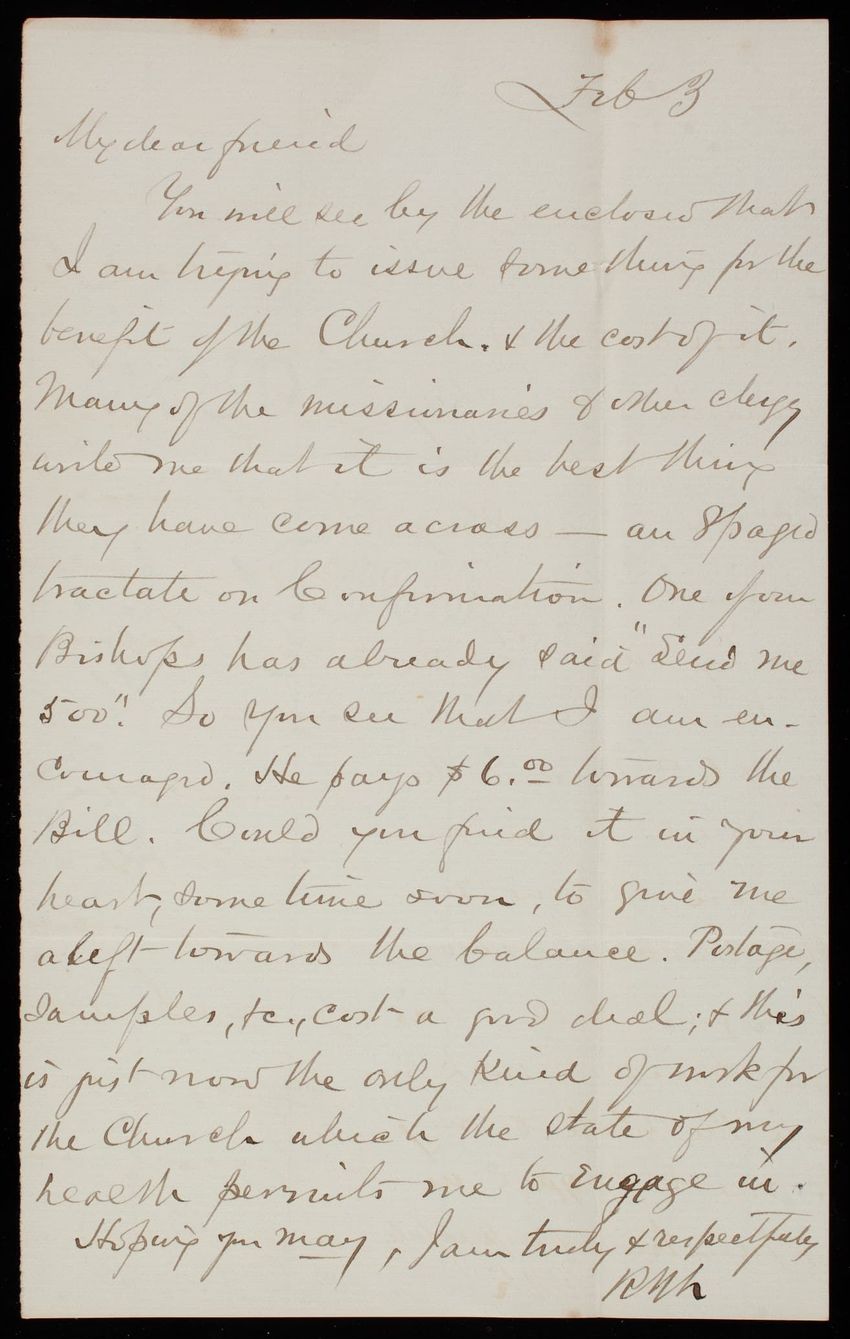 Feb 3
My dear friend
You will see by the enclosed that
I am trying to issue something for the
benefit of the Church. & the cost of it.
Many of the missionaries & other clergy
write me that it is the best thing
they have come across — an 8 paged
tractate on Confirmation. One of our
Bishops has already said "Send me
500". So you see that I am en-
couraged. He pays $6.00 towards the
Bill. Could you find it in your
heart, some time soon, to give me
a left towards the balance. Postage,
samples, &c., cost a good deal; & this
is just now the only kind of work for
the Church which the state of my
health permits me to engage in.
Hoping you may, I am truly & respectfully